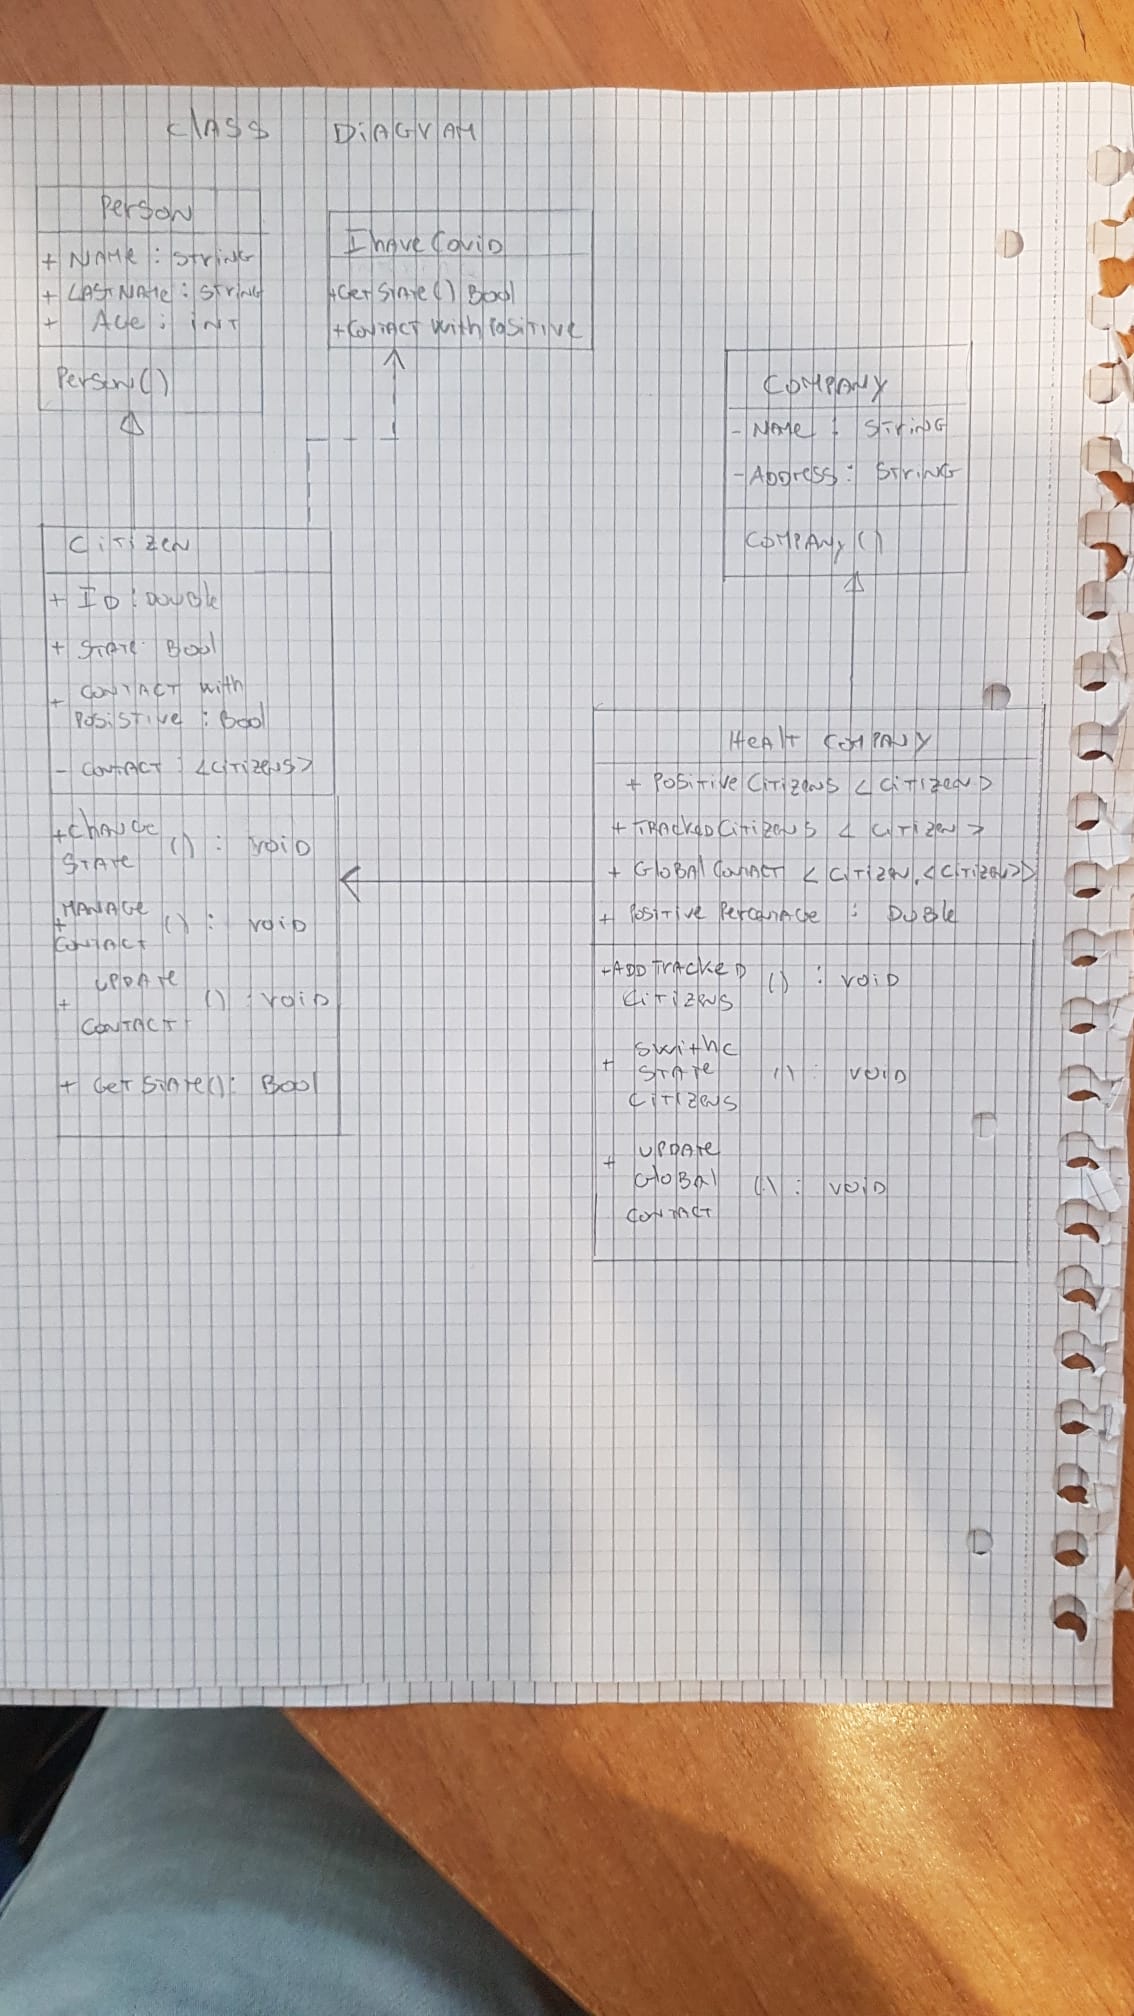 Class Diagram
Person
+ Name : String
+ LastName : String
+ Age : int
Person()
IhaveCovid
+GetState() Bool
+Contact with Positive
Company
- Name : String
- Address : String
Company()
Citizen
+ ID : Double
+ State : Bool
+ Contact with
Posistive : Bool
- Contact : <Citizens>
+Change
State () : void
+ Manage
Contact () : void
+ Update
Contact () : void
+ GetState() : Bool
Healt Company
+ Positive Citizens <Citizen>
+ Tracked Citizens <Citizen>
+ Global Contact <Citizen, <Citizen>>
+ Positive Percanage : Duble
+ADD Tracked
Citizens () : void
+ Swithc
State
Citizens () : void
+ Update
Global
Contact () : void